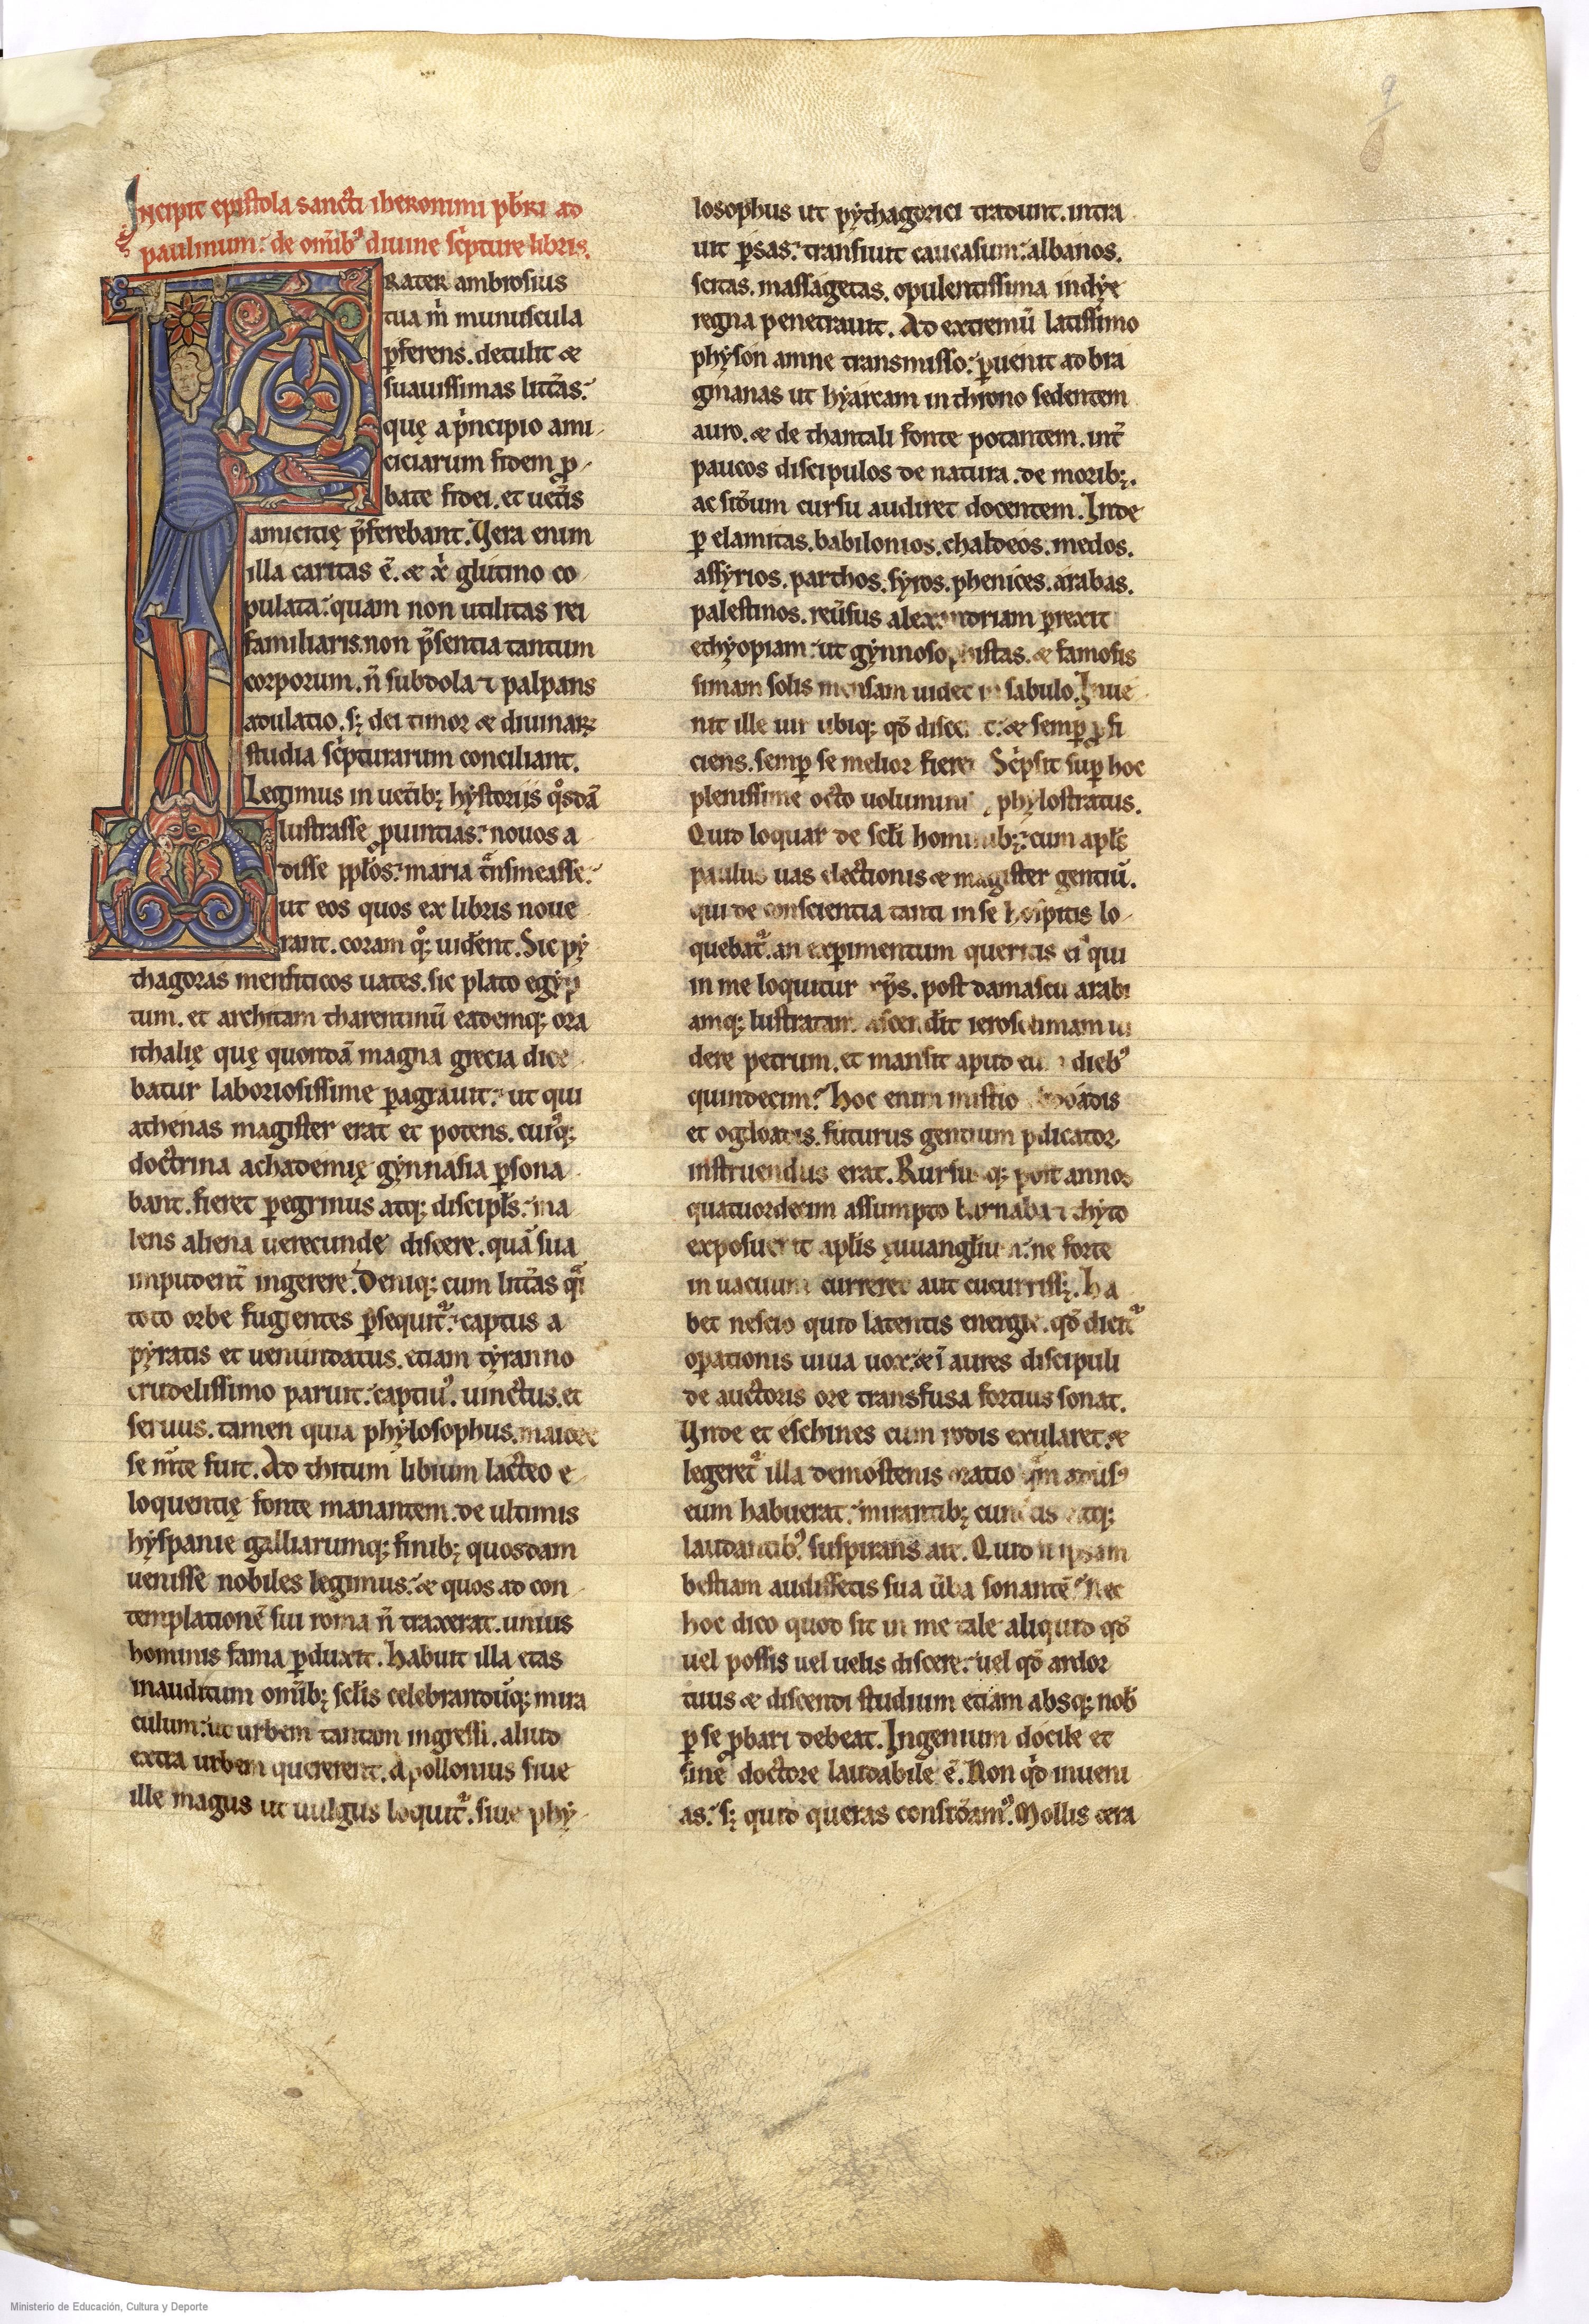 9
Incipit epistola sancti iheronimi pb̄ri ad
paulinum: de omīb᷒ diuine sc̄pture libris.
Frater ambrosius
tua m̄ munuscula
p̄ferens. detulit &
suauissimas litt̄as:
quę a p̄ncipio ami
ciciarum fidem ꝓ
bate fidei. et uet̄is
amicitię p̄ferebant. Vera enim
illa caritas ē. & xp̄i glutino co
pulata: quam non utilitas rei
familiaris. non p̄sentia tantum
corporum. n̄ subdola ⁊ palpans
adulatio. sꝫ dei timor & diuinaꝝ
studia sc̄pturarum conciliant.
Legimus in uet̄ibꝫ hystoriis q̊sdā
lustrasse ꝓuintias: nouos a
disse pp̄los: maria t̄nsmeasse:
ut eos quos ex libris noue
rant. coram qꝫ uider̄ent. Sic pẏ
thagoras menfiticos uates. sic plato egyp
tum. et architam tharentinū eademqꝫ ora
ithalię quę quondā magna grecia dice
batur laboriosissime ꝑagrauit: ut qui
athenis magister erat et potens. cuiq᷒ꝫ
doctrina achademię gẏnnasia ꝑsona
bant. fieret ꝑegrinus atqꝫ discipl̄s: ma
lens aliena uerecunde discere. quā sua
impudent̄ ingerere. Deniqꝫ cum litt̄as q̄i
toto orbe fugientes ꝑsequit᷑: captus a
pẏratis et uenundatus. etiam tẏranno
crudelissimo paruit: captiu᷒. uinctus. et
seruus. tamen quia phẏlosophus. maiore
se mīte fuit. Ad thitum libium lacteo e
loquentię fonte manantem. de ultimis
hẏspanie galliarumqꝫ finibꝫ quosdam
uenisse nobiles legimus: & quos ad con
templationē sui roma n̄ traxerat. unius
hominis fama ꝑduxit. habuit illa etas
inauditum omībꝫ scl̄is celebrandūqꝫ mira
culum: ut urbem tantam ingressi. aliud
extra urbem quererent. Apollonius siue
ille magus ut uulgus loquit᷑. siue phẏ
losophus ut pẏthagorici tradunt. intra
uit ꝑsas: transiuit caucasum: albanos.
scitas. massagetas. opulentissima indẏe
regna penetrauit. Ad extremū latissimo
phẏson amne transmisso: ꝑuenit ad bra
gmanas ut hẏarcam in throno sedentem
auro. & de thantali fonte potantem. int̄
paucos discipulos de natura. de moribꝫ.
ac sid̄um cursu audiret docentem. Inde
ꝑ elamitas. babilonios. chaldeos. medos.
assẏrios. parthos. sẏros. phenices. arabas.
palestinos. reūsus alexandriam ꝑrexit
ethẏopiam: ut gẏnnosophistas. & famosis
simam solis mensam uidet in sabulo. Inue
nit ille uir ubiqꝫ qd̄ disc & semꝑ ꝓfi
ciens. semꝑ se melior fieret Sc̄psit suꝑ hoc
plenissime octo uolumini phẏlostratus.
Quid loquar de scl̄i hominibꝫ: cum apl̄s
paulus uas electionis & magister gentiū.
qui de conscientia tanti in se hospitis lo
quebat᷑. an exꝑimentum queritis ei᷒ qui
in me loquitur xp̄s. post damascu arabi
amqꝫ lustratam ascend̄it ierosolimam ui
dere petrum. et mansit apud eum dieb᷒
quindecim: hoc enim mistio ebdoadis
et ogdoadis. futurus gentium p̄dicator
instruendus erat. Rursusqꝫ post annos
quatuordecim assumpto barnaba ⁊ thẏto
exposuerit apl̄is euuangl̄ium: ne forte
in uacuum curreret aut cucurrissꝫ. ha
bet nescio quid latentis energie. qd̄ dicit᷑
oꝑationis uiua uox: & ī aures discipuli
de auctoris ore transfusa fortius sonat.
Vnde et eschines cum rodis exularet. &
legeret᷑ illa demostenis oratio q̄m aduis᷒
eum habuerat: mirantibꝫ cunctis atqꝫ
laudantib᷒. suspirans ait. Quid si ipsam
bestiam audissetis sua ūba sonantē: Nec
hoc dico quod sit in me tale aliquid qd̄
uel possis uel uelis discere: uel qd̄ ardor
tuus & discendi studium etiam absqꝫ nob̄
ꝑ se ꝓbari debeat. Ingenium docile et
sine doctore laudabile ē. Non qd̄ inueni
as: sꝫ quid queras consid̄am᷒. Mollis cera
Ministerio de Educación, Cultura y Deporte